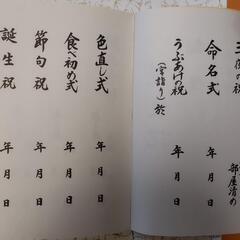 の祝
部屋清め
命名式 年月日
うぶあけの祝
(宮詣り)於
色直し式 年月日
食べ初め式 年月日
節句祝 年月日
誕生祝 年月日